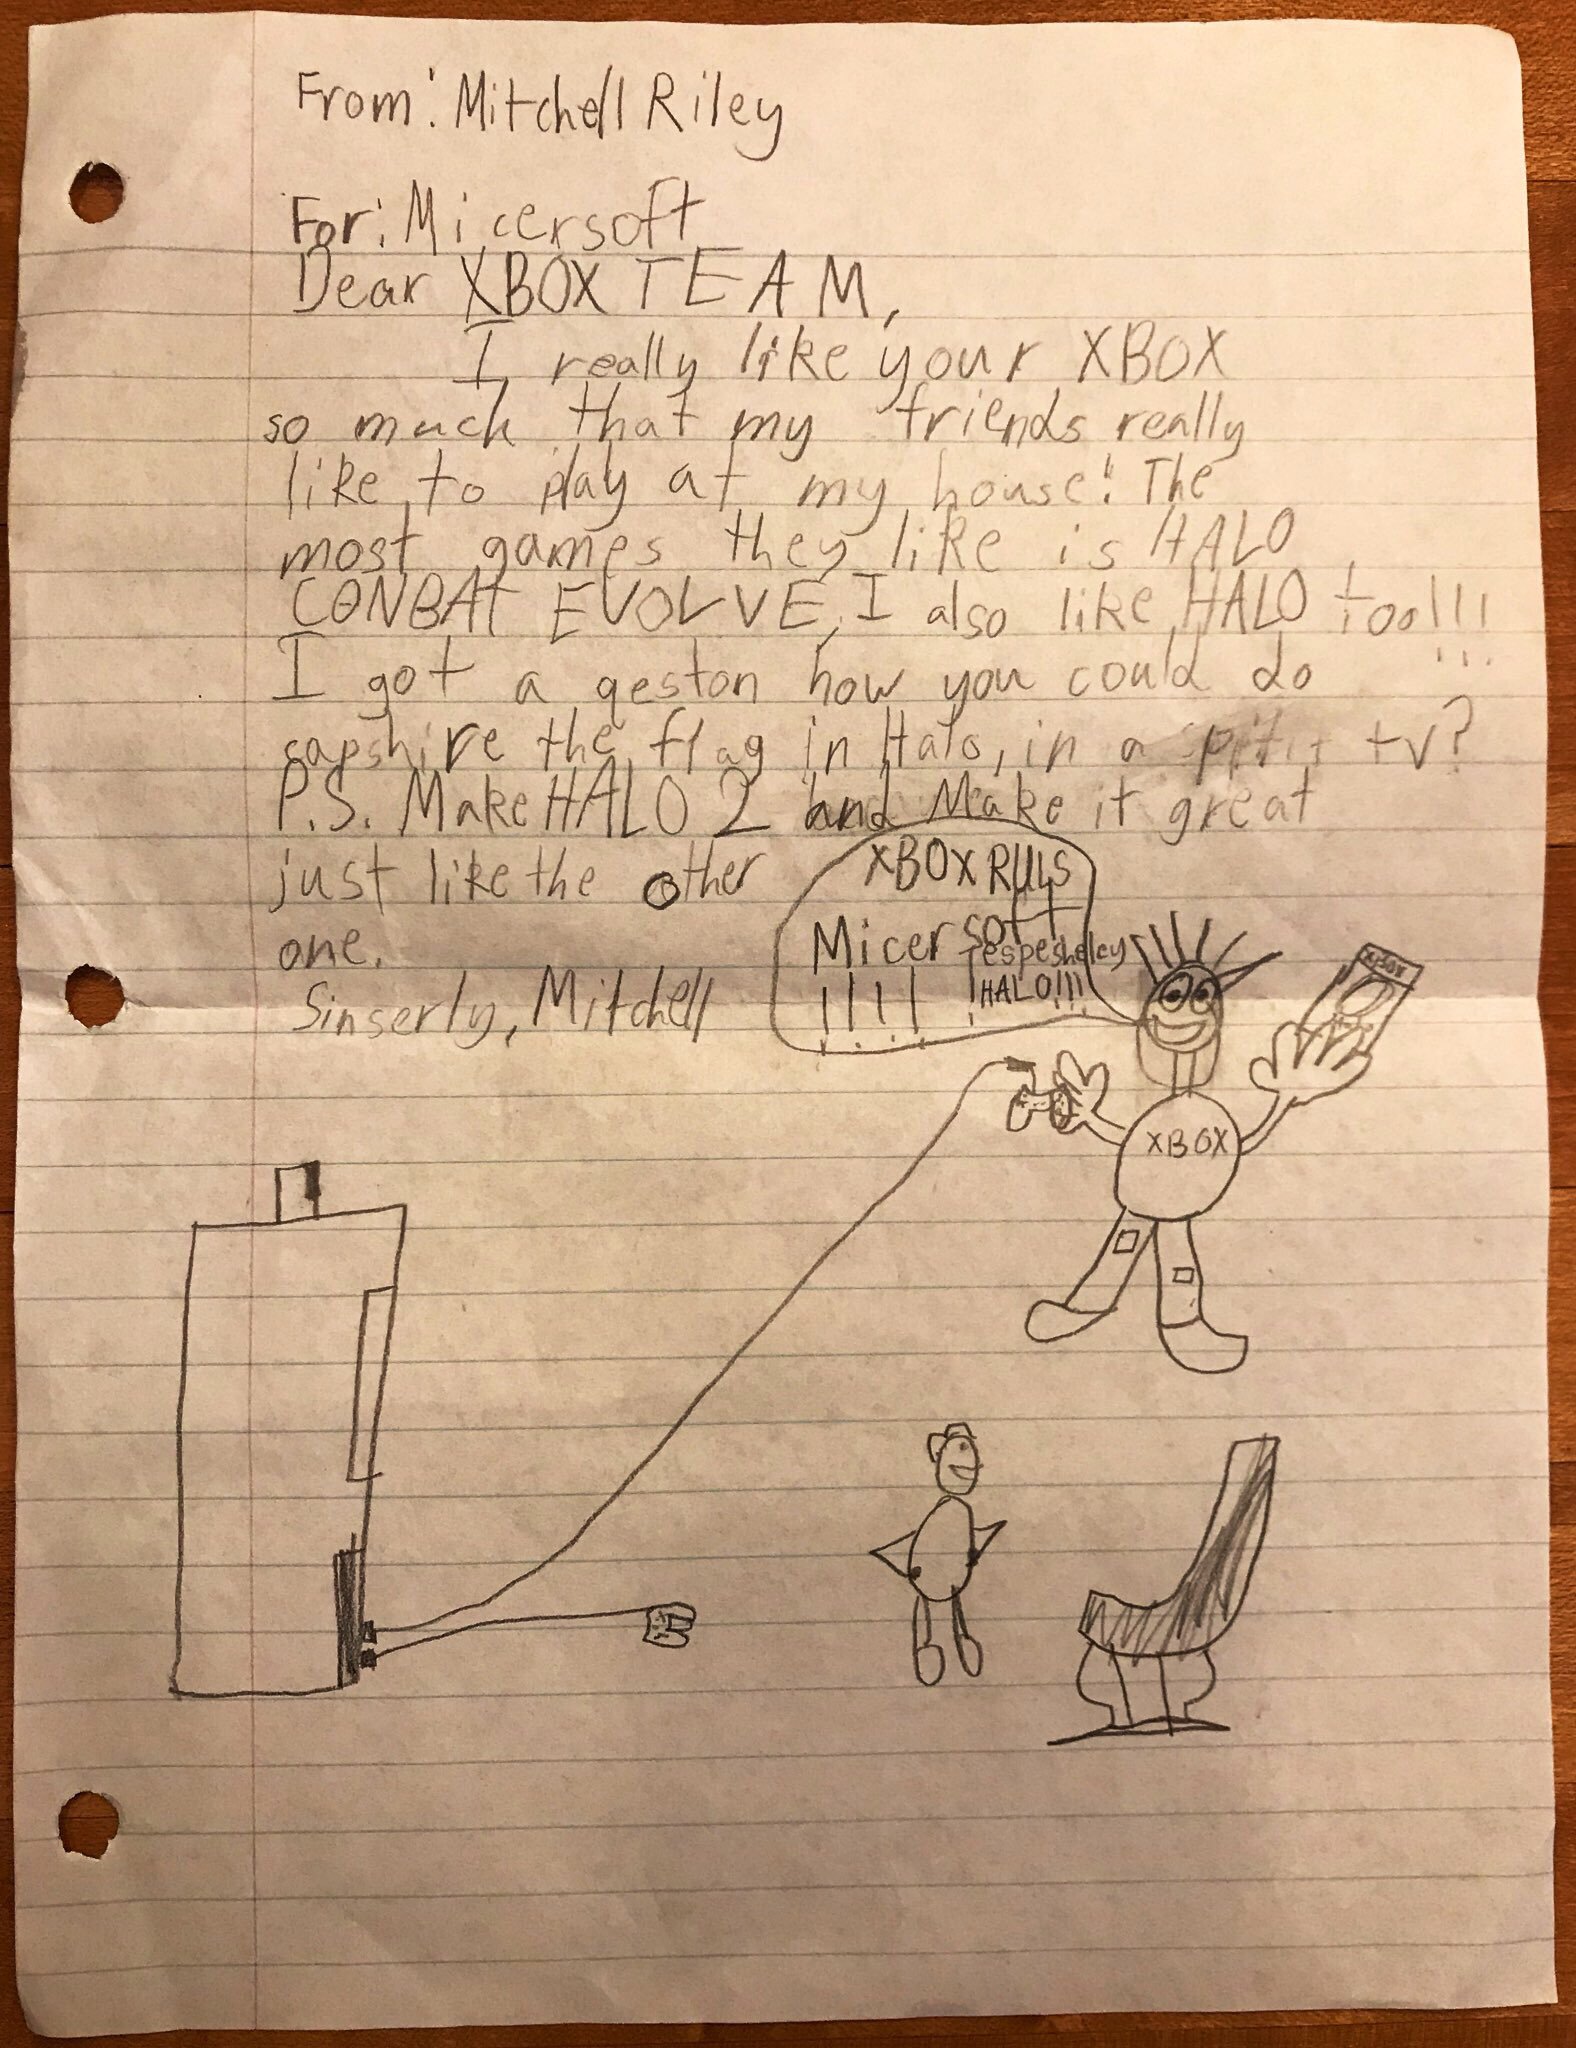 From: Mitchell Riley
For: Micersoft
Dear XBOX TEAM,
I really like your XBOX
so much that my friends really
like to play at my house! The
most games they like is HALO
CONBAT EVOLVE, I also like HALO too!!!
I got a qeston how you could do
sapshire the flag in Halo, in a tv?
P.S. Make HALO 2 and Make it great
just like the other
one.
Sinserly, Mitchell
XBOX RULS
Micersoft
espesheley
!!!! HALO!!!
XBOX
XBOX